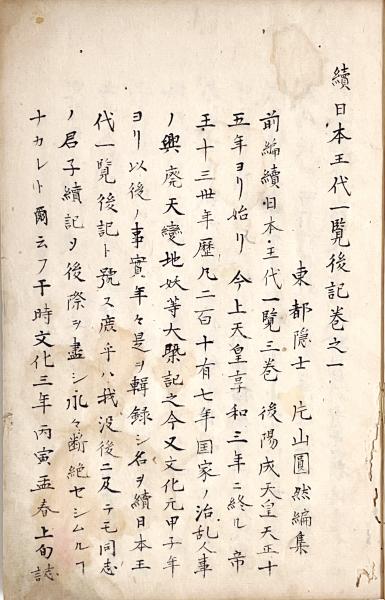 續日本王代一覽後記巻之一
東都隠士 片山圓然編集
前編續日本王代一覽三巻 後陽成天皇天正十
五年ヨリ始リ 今上天皇享和三年ニ終ル 帝
王十三世年歴凡二百十有七年国家ノ治乱人事
ノ興廃天變地妖等大槩記之今又文化元甲子年
ヨリ以後ノ事實年々是ヲ輯録シ名ヲ續日本王
代一覽後記ト號ス庶乎ハ我没後ニ及テモ同志
ノ君子續記ヲ後際ヲ盡シ永々断絶セシムルヿ
ナカレト爾云フ干時文化三年丙寅孟春上旬誌